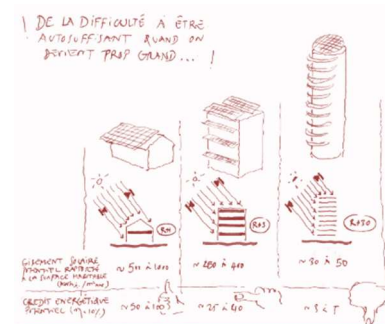 ! DE LA DIFFICULTÉ À ÊTRE
AUTOSUFFISANT QUAND ON
DEVIENT TROP GRAND... !
R+1
R+3
R+30
GISEMENT SOLAIRE
POTENTIEL RAPPORTÉ
À LA SURFACE HABITABLE
~ 500 à 1000
~ 200 à 400
~ 30 à 50
CREDIT ENERGÉTIQUE
POTENTIEL
~ 50 à 100
~ 25 à 40
~ 3 à 5